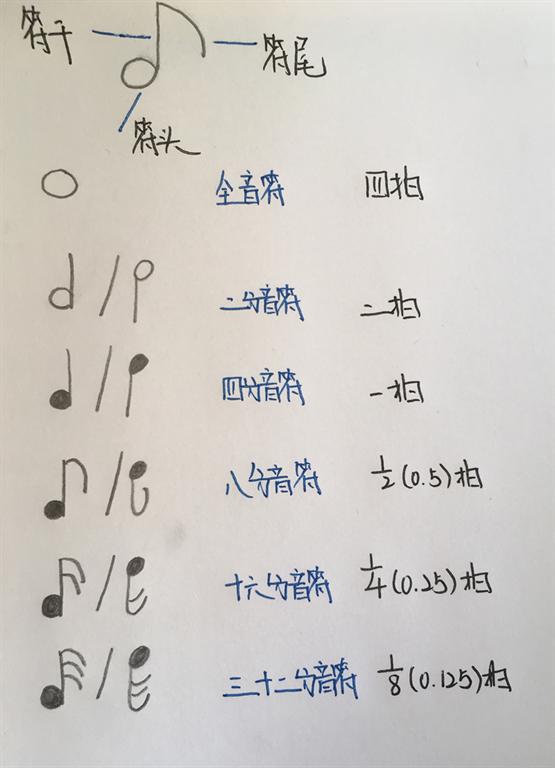 符干
符尾
符头
全音符 四拍
二分音符 二拍
四分音符 一拍
八分音符 1/2(0.5)拍
十六分音符 1/4(0.25)拍
三十二分音符 1/8(0.125)拍